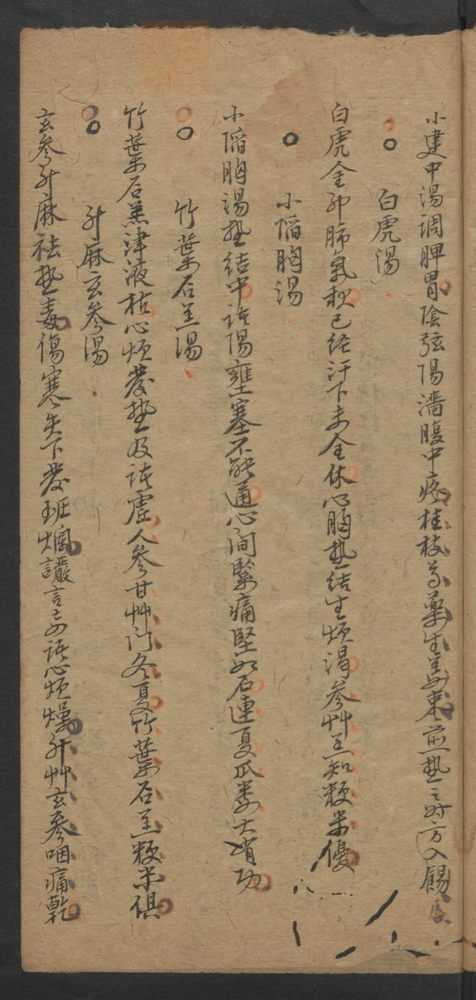 小建中湯調脾胃陰弦陽濇腹中疼桂枝芍藥生姜棗煎熱之時方入餳
白虎湯
白虎金卯肺氣秋已經汗下未全休心胸熱結生煩渴參艸石知粳米優
小陷胸湯
小陷胸湯熱結中諸陽壅塞不能通心间緊痛堅如石連夏瓜蒌大有功
竹葉石羔湯
竹葉石羔津液枯心煩發熱及諸虛人參甘艸门冬夏竹葉石羔粳米俱
升麻玄參湯
玄參升麻祛熱毒傷寒失下發班爛讝言妄語心煩燥升艸玄參咽痛乾